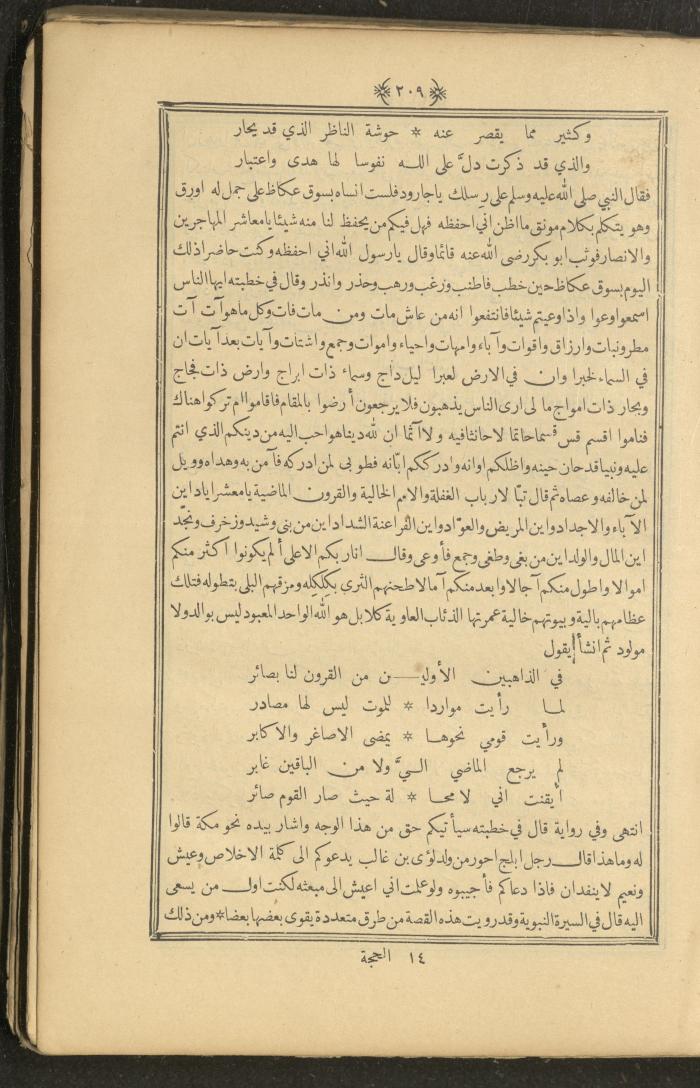 ٢٠٩
وكثير مما يقصر عنه * حوشة الناظر الذي قد يحار
والذي قد ذكرت دلَّ على اللـه نفوسا لها هدى واعتبار
فقال النبي صلى الله عليه وسلم على رسلك ياجارود فلست انساه بسوق عكاظ على جمل له اورق
وهو يتكلم بكلام مونق ما اظن اني احفظه فهل فيكم من يحفظ لنا منه شيئا يا معاشر المهاجرين
والانصار فوثب ابو بكر رضى الله عنه قائما وقال يارسول الله اني احفظه وكنت حاضرا ذلك
اليوم بسوق عكاظ حين خطب فاطنب ورغب ورهب وحذر وانذر وقال في خطبته ايها الناس
اسمعوا وعوا واذا وعيتم شيئا فانتفعوا انه من عاش مات ومن مات فات وكل ما هو آت آت
مطر ونبات وارزاق واقوات وآباء وامهات واحياء واموات وجمع واشتات وآيات بعد آيات ان
في السماء لخبرا وان في الارض لعبرا ليل داج وسماء ذات ابراج وارض ذات فجاج
وبحار ذات امواج ما لى ارى الناس يذهبون فلا يرجعون أرضوا بالمقام فاقاموا ام تركوا هناك
فناموا اقسم قس قسما حاتما لا حانثا فيه ولا آثما ان لله دينا هو احب اليه من دينكم الذي انتم
عليه ونبيا قد حان حينه واظلكم اوانه وادرككم ابّانه فطوبى لمن ادركه فآمن به وهداه وويل
لمن خالفه وعصاه ثم قال تبّا لارباب الغفلة والامم الخالية والقرون الماضية يا معشر اياد اين
الآباء والاجداد واين المريض والعوّاد واين الفراعنة الشداد اين من بنى وشيد وزخرف ونجّد
اين المال والولد اين من بغى وطغى وجمع فأوعى وقال انا ربكم الاعلى ألم يكونوا اكثر منكم
اموالا واطول منكم آجالا وابعد منكم آمالا طحنهم الثرى بكلكله ومزقهم البلى بتطوله فتلك
عظامهم بالية وبيوتهم خالية عمرتها الذئاب العاوية كلا بل هو الله الواحد المعبود ليس بوالد ولا
مولود ثم انشأ يقول
في الذاهبين الأوليـــن من القرون لنا بصائر
لمـا رأيت مواردا * للموت ليس لها مصادر
ورأيت قومي نحوهـا * يمضى الاصاغر والاكابر
لم يرجع الماضي اليَّ ولا من الباقين غابر
أيقنت اني لا محـا * لة حيث صار القوم صائر
انتهى وفي رواية قال في خطبته سيأتيكم حق من هذا الوجه واشار بيده نحو مكة قالوا
له وما هذا قال رجل ابلج احور من ولد لؤى بن غالب يدعوكم الى كلمة الاخلاص وعيش
ونعيم لا ينفدان فاذا دعاكم فأجيبوه ولو علمت اني اعيش الى مبعثه لكنت اول من يسعى
اليه قال في السيرة النبوية وقد رويت هذه القصة من طرق متعددة يقوى بعضها بعضا * ومن ذلك
١٤ الحجة